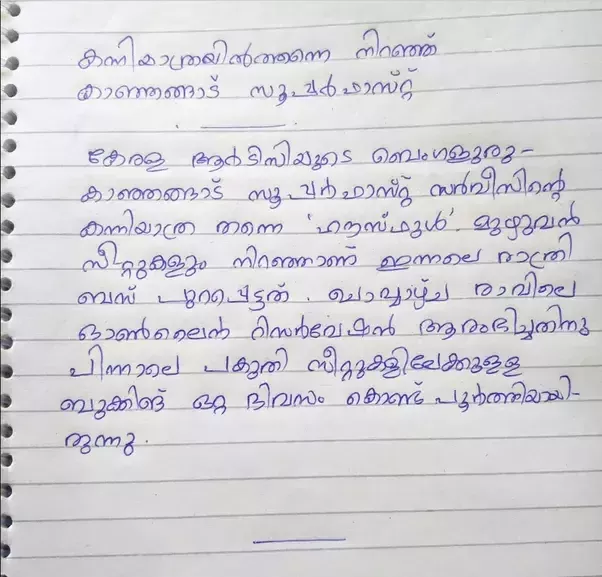 കന്നിയാത്രയിൽത്തന്നെ നിറഞ്ഞ്
കാഞ്ഞങ്ങാട് സൂപ്പർഫാസ്റ്റ്
കേരള ആർടിസിയുടെ ബെംഗളൂരു-
കാഞ്ഞങ്ങാട് സൂപ്പർഫാസ്റ്റ് സർവീസിന്റെ
കന്നിയാത്ര തന്നെ 'ഹൗസ്ഫുൾ'. മുഴുവൻ
സീറ്റുകളും നിറഞ്ഞാണ് ഇന്നലെ രാത്രി
ബസ് പുറപ്പെട്ടത്. ചൊവ്വാഴ്ച രാവിലെ
ഓൺലൈൻ റിസർവേഷൻ ആരംഭിച്ചതിനു
പിന്നാലെ പകുതി സീറ്റുകളിലേക്കുള്ള
ബുക്കിങ് ഒറ്റ ദിവസം കൊണ്ട് പൂർത്തിയായി-
രുന്നു.